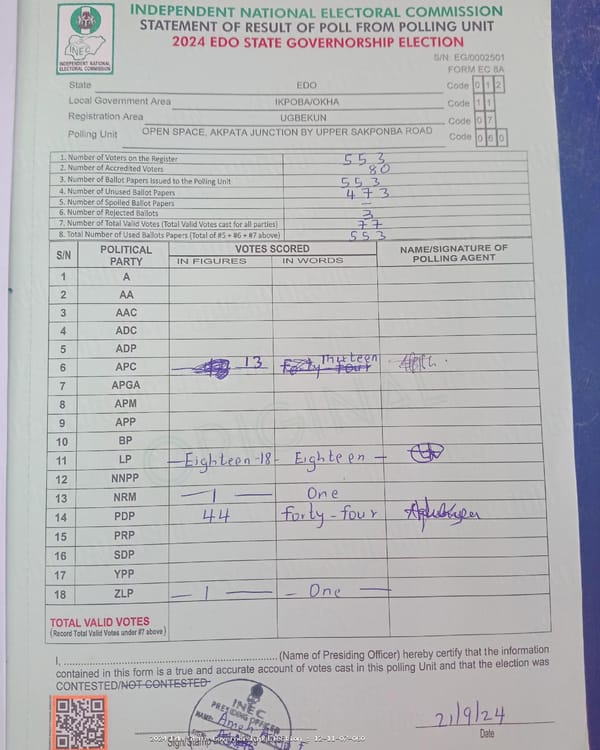 INDEPENDENT NATIONAL ELECTORAL COMMISSION
STATEMENT OF RESULT OF POLL FROM POLLING UNIT
2024 EDO STATE GOVERNORSHIP ELECTION
INEC
INDEPENDENT NATIONAL
ELECTORAL COMMISSION
S/N: EG/0002501
FORM EC 8A
State EDO Code 0 1 2
Local Government Area IKPOBA/OKHA Code 1 1
Registration Area UGBEKUN Code 0 7
Polling Unit OPEN SPACE, AKPATA JUNCTION BY UPPER SAKPONBA ROAD Code 0 6 0
1. Number of Voters on the Register 553
2. Number of Accredited Voters 80
3. Number of Ballot Papers Issued to the Polling Unit 553
4. Number of Unused Ballot Papers 473
5. Number of Spoiled Ballot Papers —
6. Number of Rejected Ballots 3
7. Number of Total Valid Votes (Total Valid Votes cast for all parties) 77
8. Total Number of Used Ballots Papers (Total of #5 + #6 + #7 above) 553
S/N POLITICAL PARTY VOTES SCORED NAME/SIGNATURE OF POLLING AGENT
IN FIGURES IN WORDS
1 A
2 AA
3 AAC
4 ADC
5 ADP
6 APC 13 Thirteen Forty-Four
7 APGA
8 APM
9 APP
10 BP
ORIGINAL
11 LP —Eighteen-18- Eighteen —
12 NNPP
13 NRM — 1 — One
14 PDP 44 forty-four
15 PRP
16 SDP
17 YPP
18 ZLP — 1 — – One —
TOTAL VALID VOTES
(Record Total Valid Votes under #7 above)
I, (Name of Presiding Officer) hereby certify that the information
contained in this form is a true and accurate account of votes cast in this polling Unit and that the election was
CONTESTED/NOT CONTESTED
INEC
PRESIDING OFFICER
NAME:
21/9/24
Sign/Stamp Date